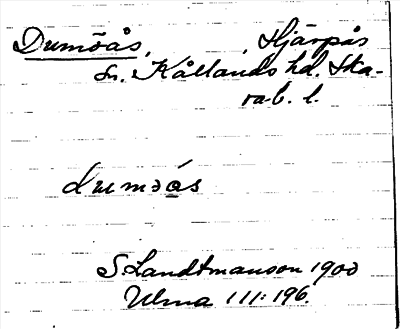 Dumöås, Hjärpås
sn. Kållands hd. Ska-
rab. l.
duməás
S. Landtmanson 1900
Ulma 111:196.